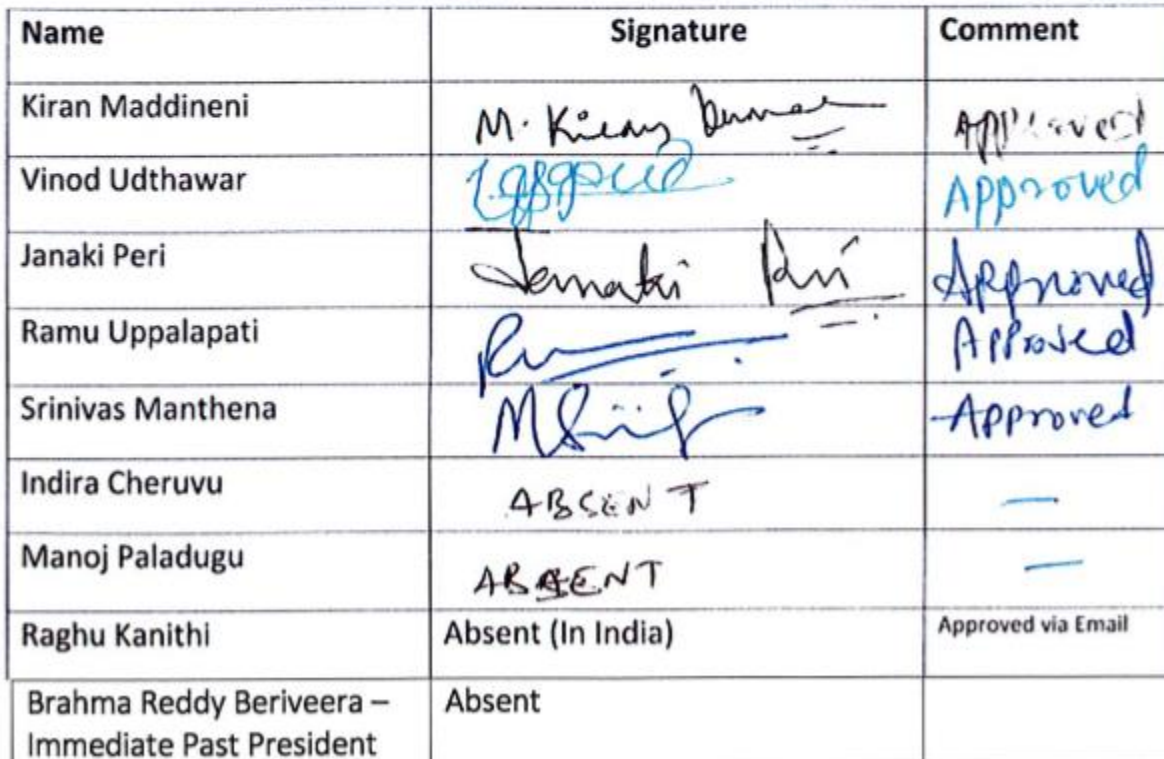 Name Signature Comment
Kiran Maddineni M. Kiran Kumar Approved
Vinod Udthawar Approved
Janaki Peri Janaki Peri Approved
Ramu Uppalapati Approved
Srinivas Manthena Approved
Indira Cheruvu ABSENT —
Manoj Paladugu ABSENT —
Raghu Kanithi Absent (In India) Approved via Email
Brahma Reddy Beriveera – Absent
Immediate Past President